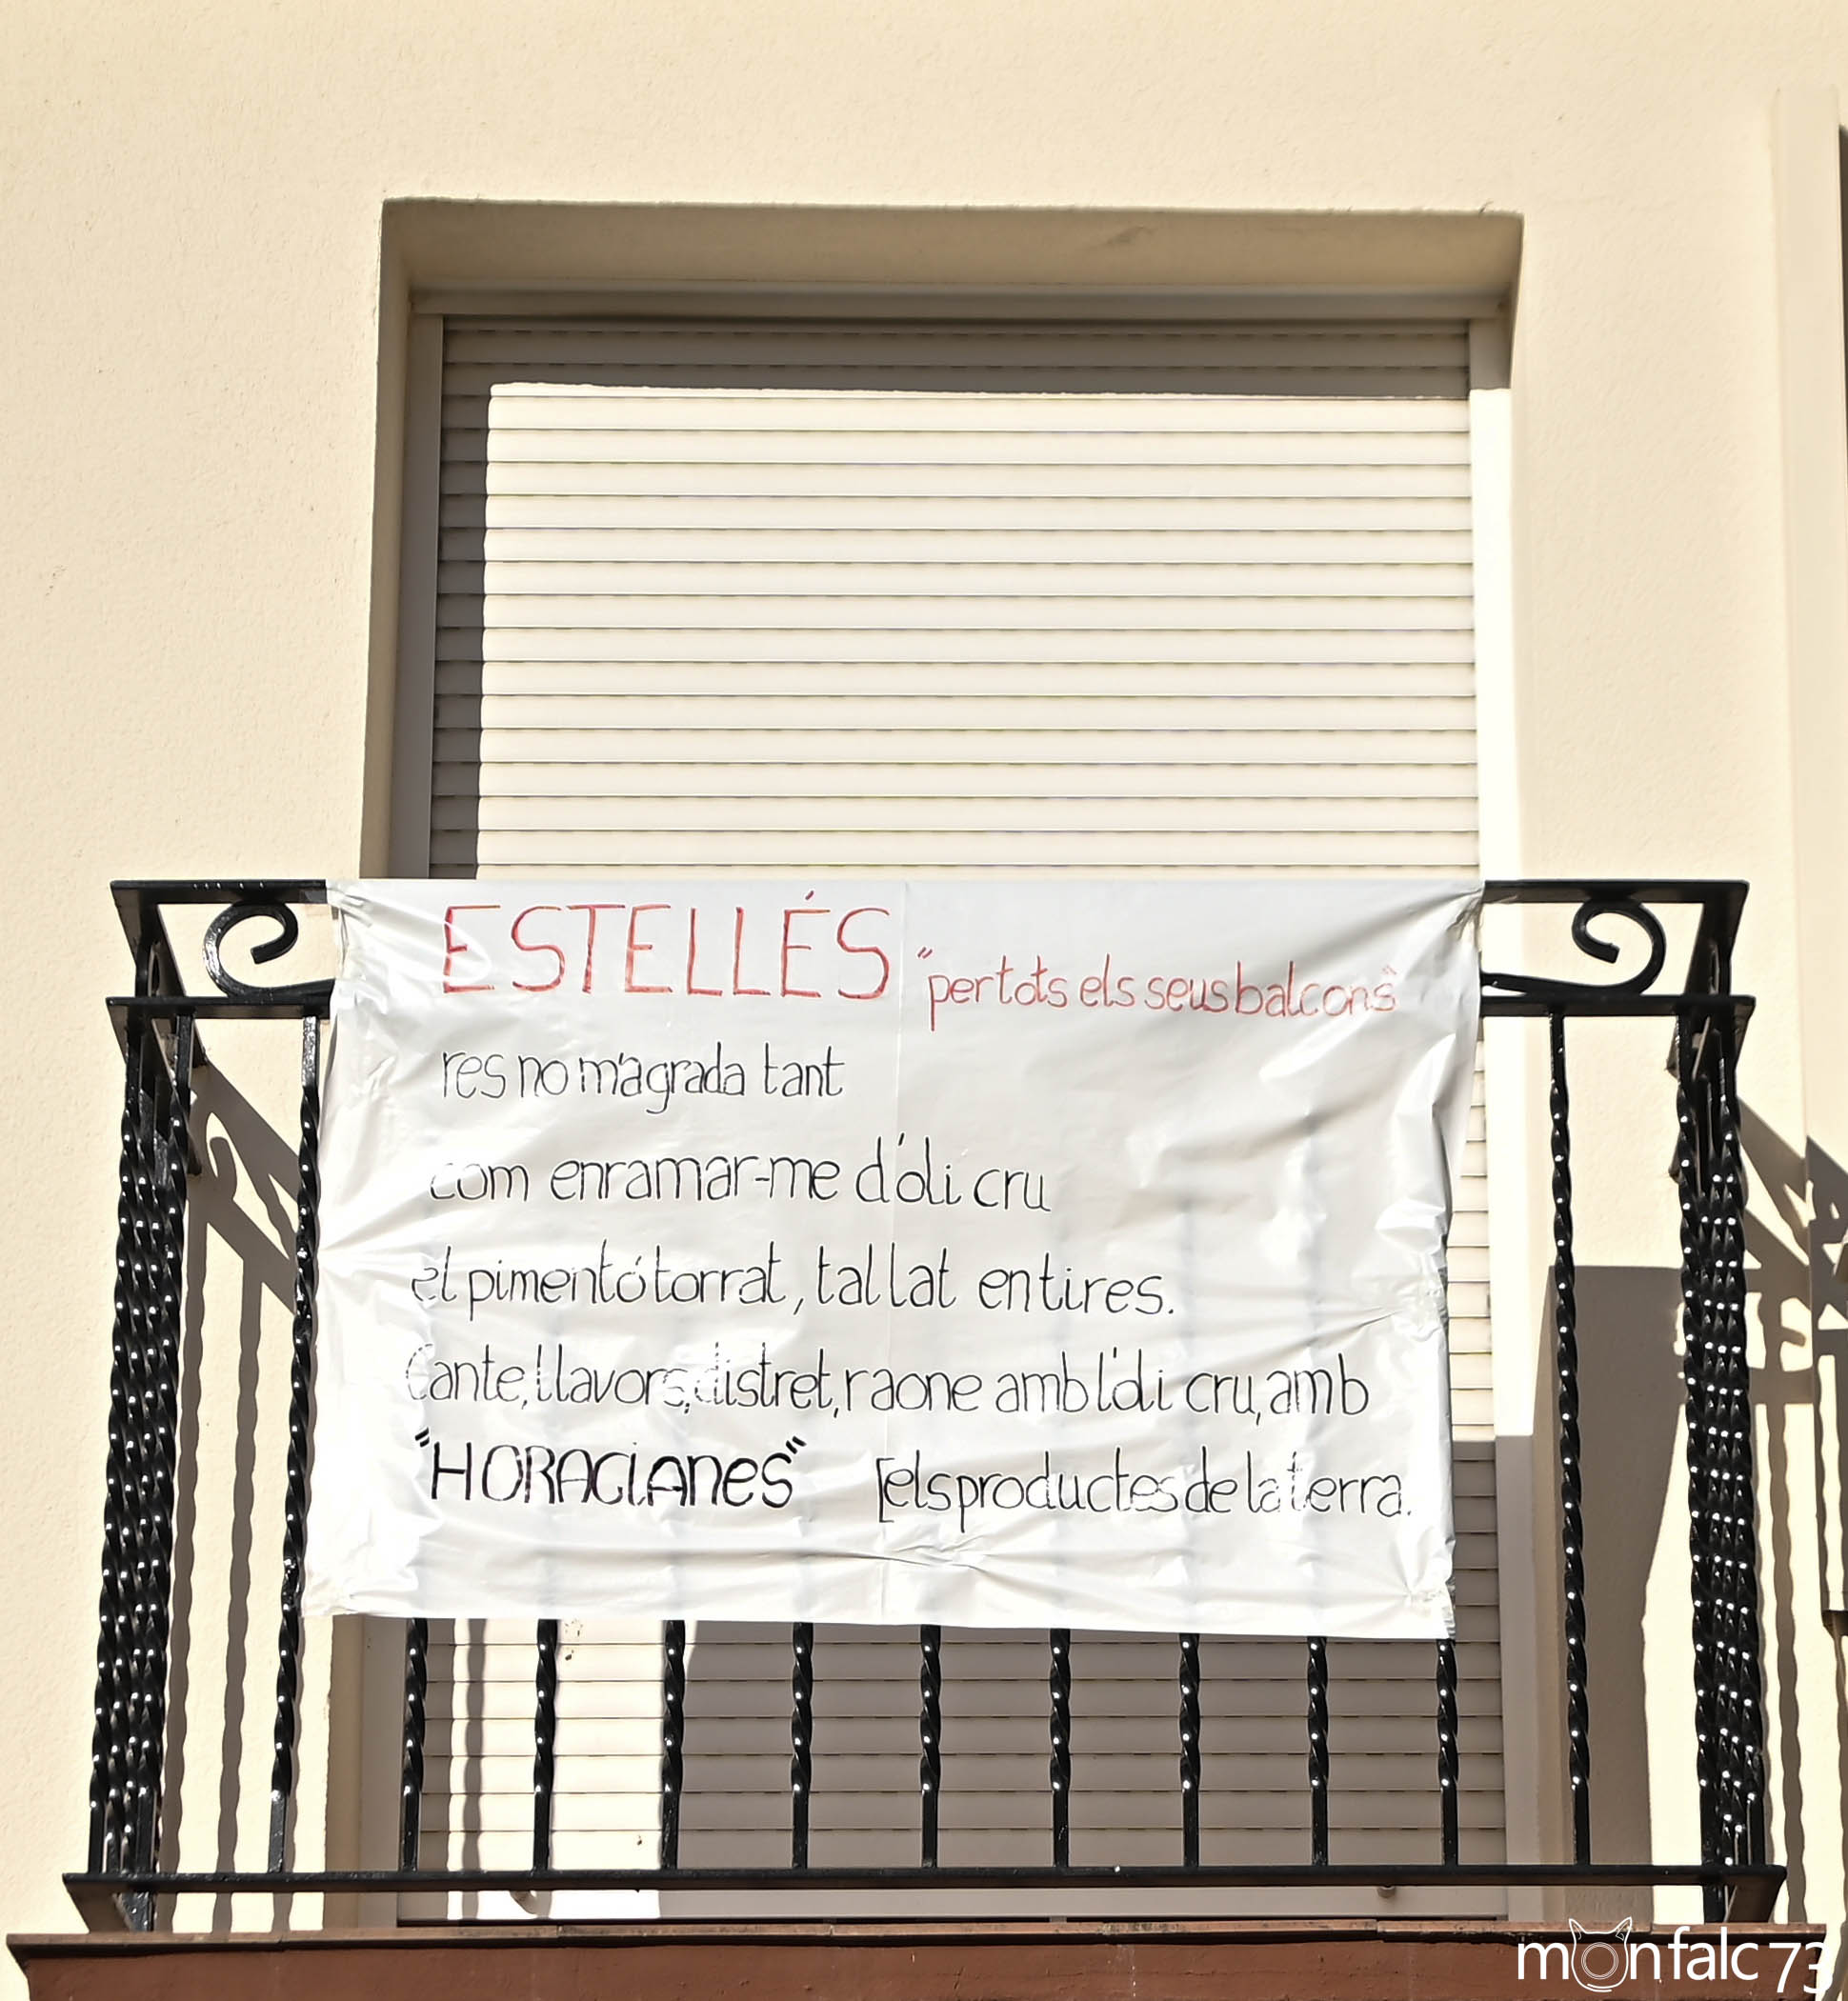 ESTELLÉS "per tots els seus balcons"
res no m'agrada tant
com enramar-me d'oli cru
el pimentó torrat, tallat en tires.
Cante, llavors, distret, raone amb l'oli cru, amb
"HORACIANES" [els productes de la terra.
monfalc 73